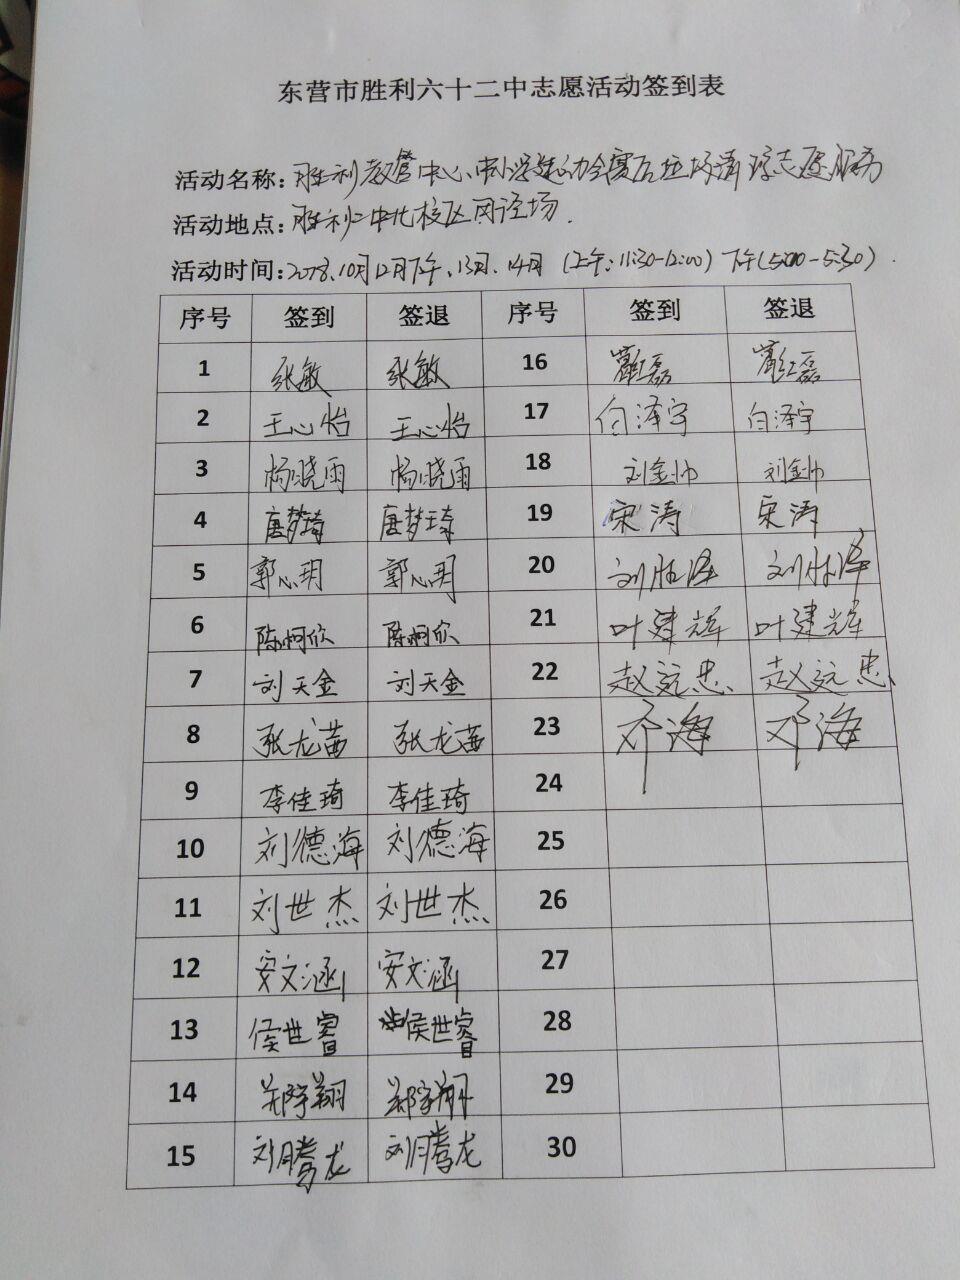 东营市胜利六十二中志愿活动签到表
活动名称：胜利教管中心中小学运动会赛后垃圾清理志愿服务
活动地点：胜利一中北校区田径场.
活动时间：2018.10月12日下午、13日、14日（上午：11:30-12:00）下午(5:00-5:30).
序号 签到 签退 序号 签到 签退
1 张敏 张敏 16
2 王心怡 王心怡 17 白泽宇 白泽宇
3 杨晓雨 杨晓雨 18 刘金帅 刘金帅
4 唐梦琦 唐梦琦 19 宋涛 宋涛
5 郭心玥 郭心玥 20
6 陈柯欣 陈柯欣 21 叶建辉 叶建辉
7 刘天金 刘天金 22 赵远忠 赵远忠
8 张龙茜 张龙茜 23 邓海 邓海
9 李佳琦 李佳琦 24
10 刘德海 刘德海 25
11 刘世杰 刘世杰 26
12 安文涵 安文涵 27
13 侯世睿 侯世睿 28
14 郑宇翔 郑宇翔 29
15 刘腾龙 刘腾龙 30